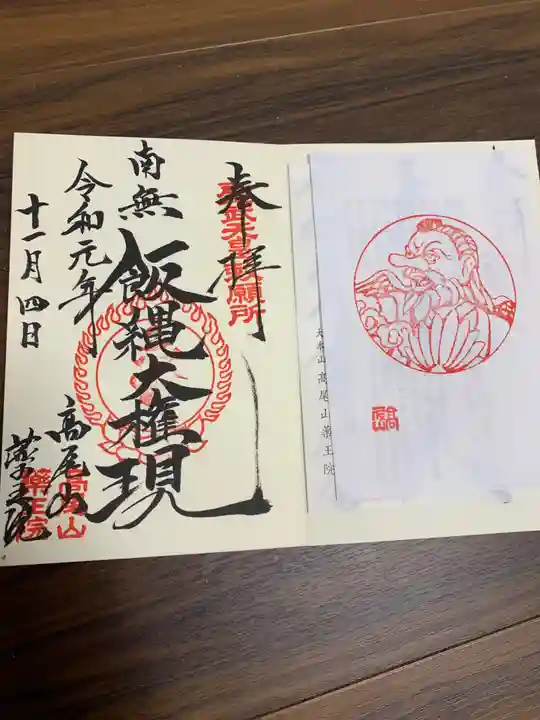 大本山高尾山薬王院
奉拝
聖武天皇勅願所
南無飯縄大権現
令和元年
十一月四日
高尾山
薬王院
高尾山
薬王院